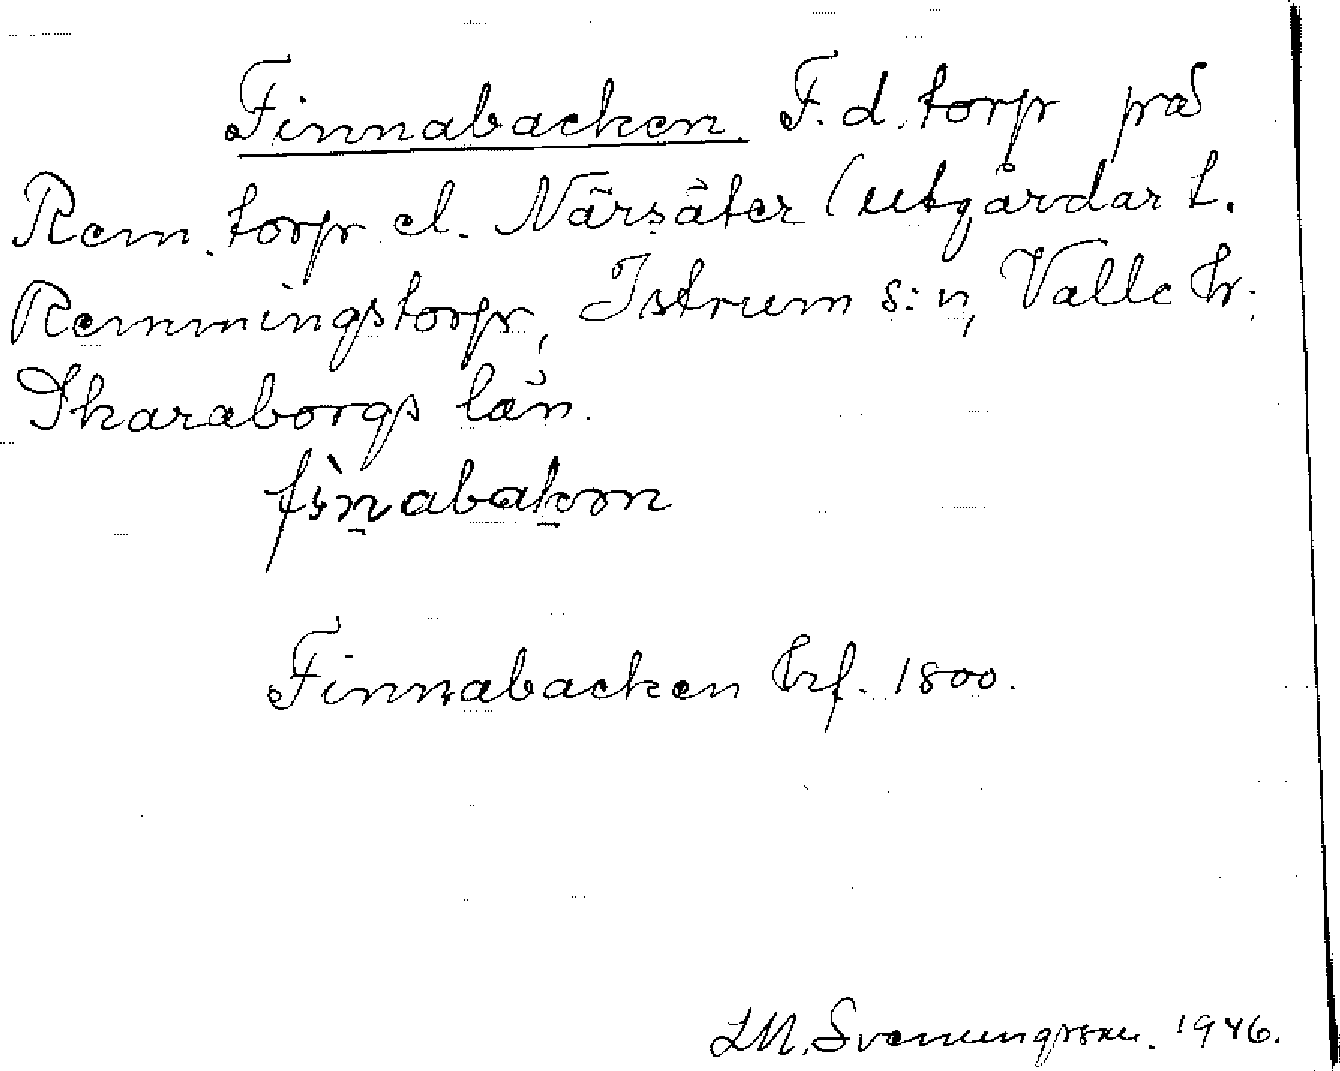 Finnabacken. F.d. torp på
Rem. torp el. Närsäter (utgårdar t.
Remmingstorp, Istrum s:n, Valle hr.
Skaraborgs län.
fìnabakən
Finnabacken hrf. 1800.
LM. Svenungsson. 1946.